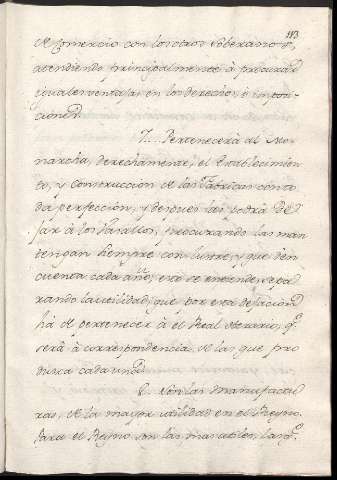 113
de Comercio con los otros Soberanos,
atendiendo principalmente à procurar
iguales ventajas en los derechos, è impo-
ciones.
7.... Pertenecerà al Mo-
narcha, derechamente, el Establecimien-
to, y Construccion de las Fabricas con to-
da perfeccion, y despues las podrà de-
jar à los Vasallos, procurando las man-
tengan siempre con lustre, y que den
cuenta cada año; esto se entiende, repa-
rando la utilidad, que por esta dejacion
hà de pertenecer à el Real Herario, qᵉ
serà à correspondencia de las que pro-
dusca cada una.
8.. Son las manufactu-
ras, de la mayor utilidad en el Reyno.
Para el Reyno son las mas utiles, las qᵉ